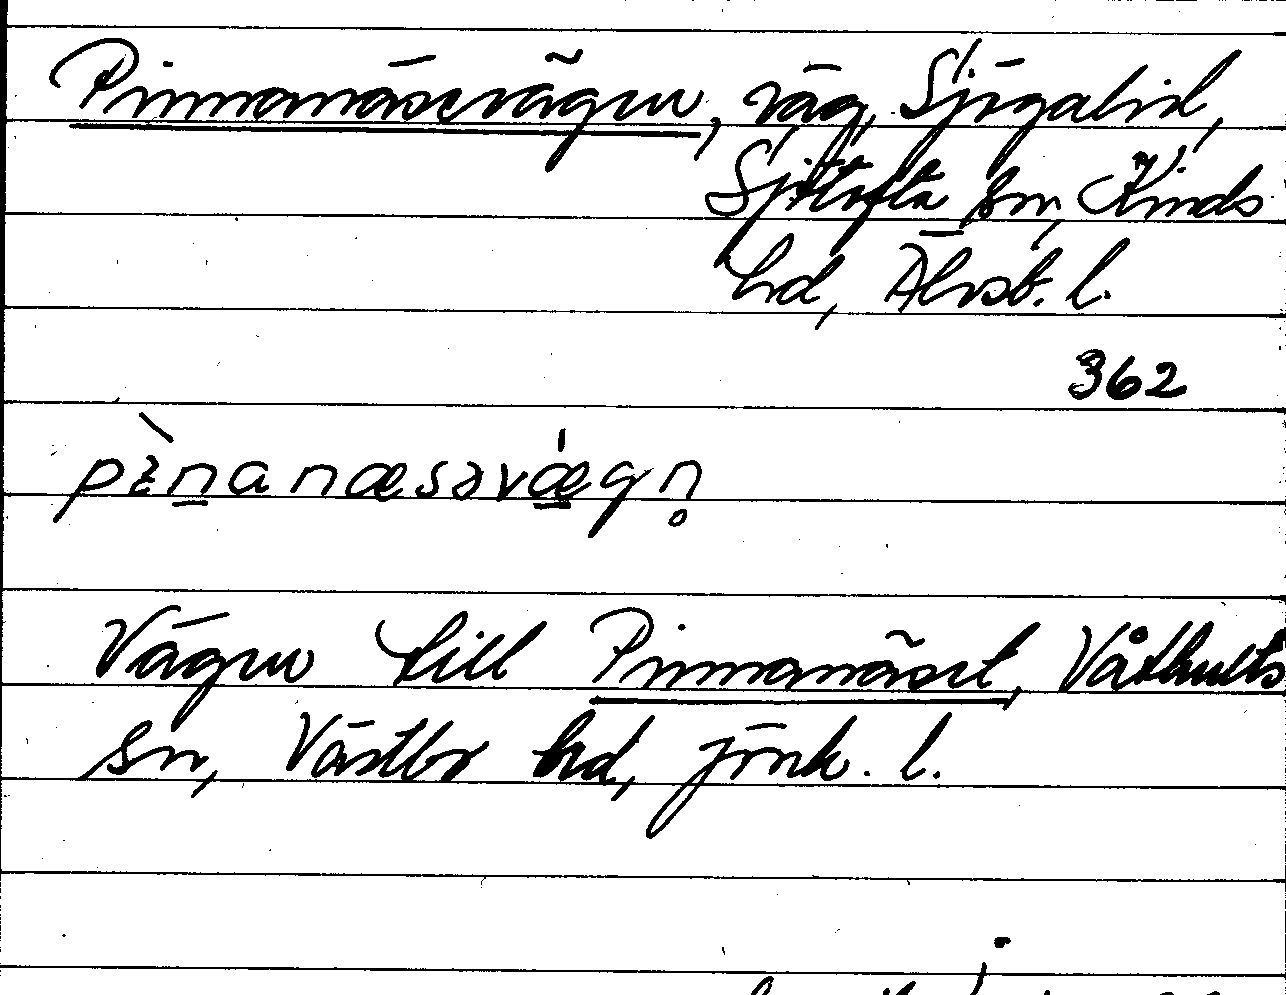 Pinnanäsevägen, väg, Sjögalid,
Sjötofta sn, Kinds
hd, Älvsb. l.
362
pɛ̀nanæsəvǽgn̥
Vägen till Pinnanäset, Våthults
sn, Västbo hd, Jönk. l.